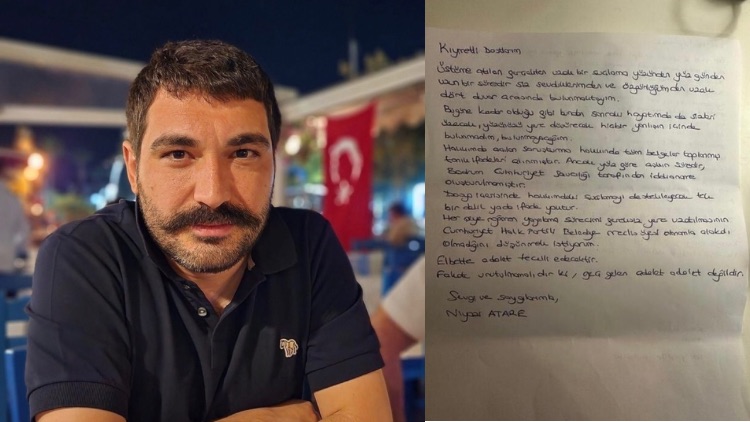 Kıymetli Dostlarım
Üstüme atılan gerçekten uzak bir suçlama yüzünden yüz günden
uzun bir süredir siz sevdiklerimden ve özgürlüğümden uzak
dört duvar arasında bulunmaktayım.
Bugüne kadar olduğu gibi bundan sonraki hayatımda da sizleri
yere düşürecek hiçbir yanlışın içinde
bulunmadım, bulunmayacağım.
Hakkımda açılan soruşturma hakkında tüm belgeler toplanmış
tanık ifadeleri alınmıştır. Ancak aydır
Bodrum Cumhuriyet Savcılığı tarafından iddianame
oluşturulmamıştır.
Dosya içerisinde hakkımdaki suçlamayı destekleyecek tek
bir delil yada ifade yoktur.
Her şeye rağmen yargılama sürecimi gereksiz yere uzatılmasının
Cumhuriyet Halk Partili Belediye meclis üyesi olmamla alakalı
olmadığını düşünmek istiyorum.
Elbette adalet tecelli edecektir.
Fakat unutulmamalıdır ki, geç gelen adalet adalet değildir.
Sevgi ve saygılarımla,
Niyazi ATARE